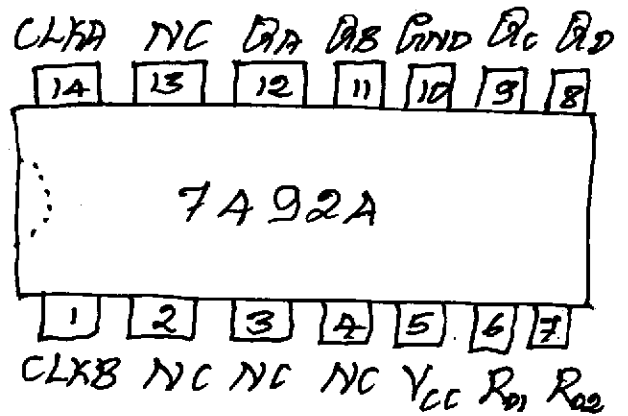 CLKA NC QA QB GND QC QD
14 13 12 11 10 9 8
7492A
1 2 3 4 5 6 7
CLKB NC NC NC VCC R01 R02